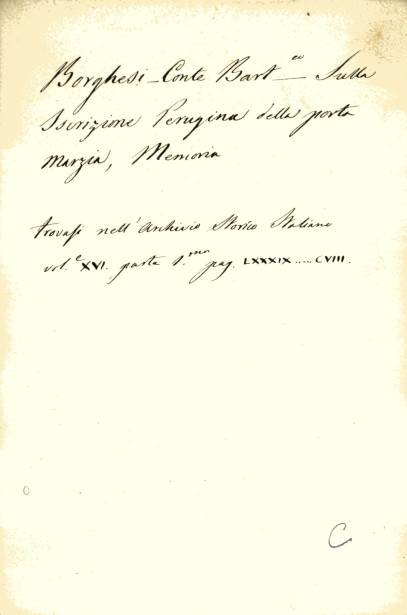 Borghesi - Conte Bart.eo — Sulla
Iscrizione Perugina della porta
Marzia, Memoria
trovasi nell'Archivio Storico Italiano
vol.e XVI. parte 1.ma pag. LXXXIX.....CVIII.
C